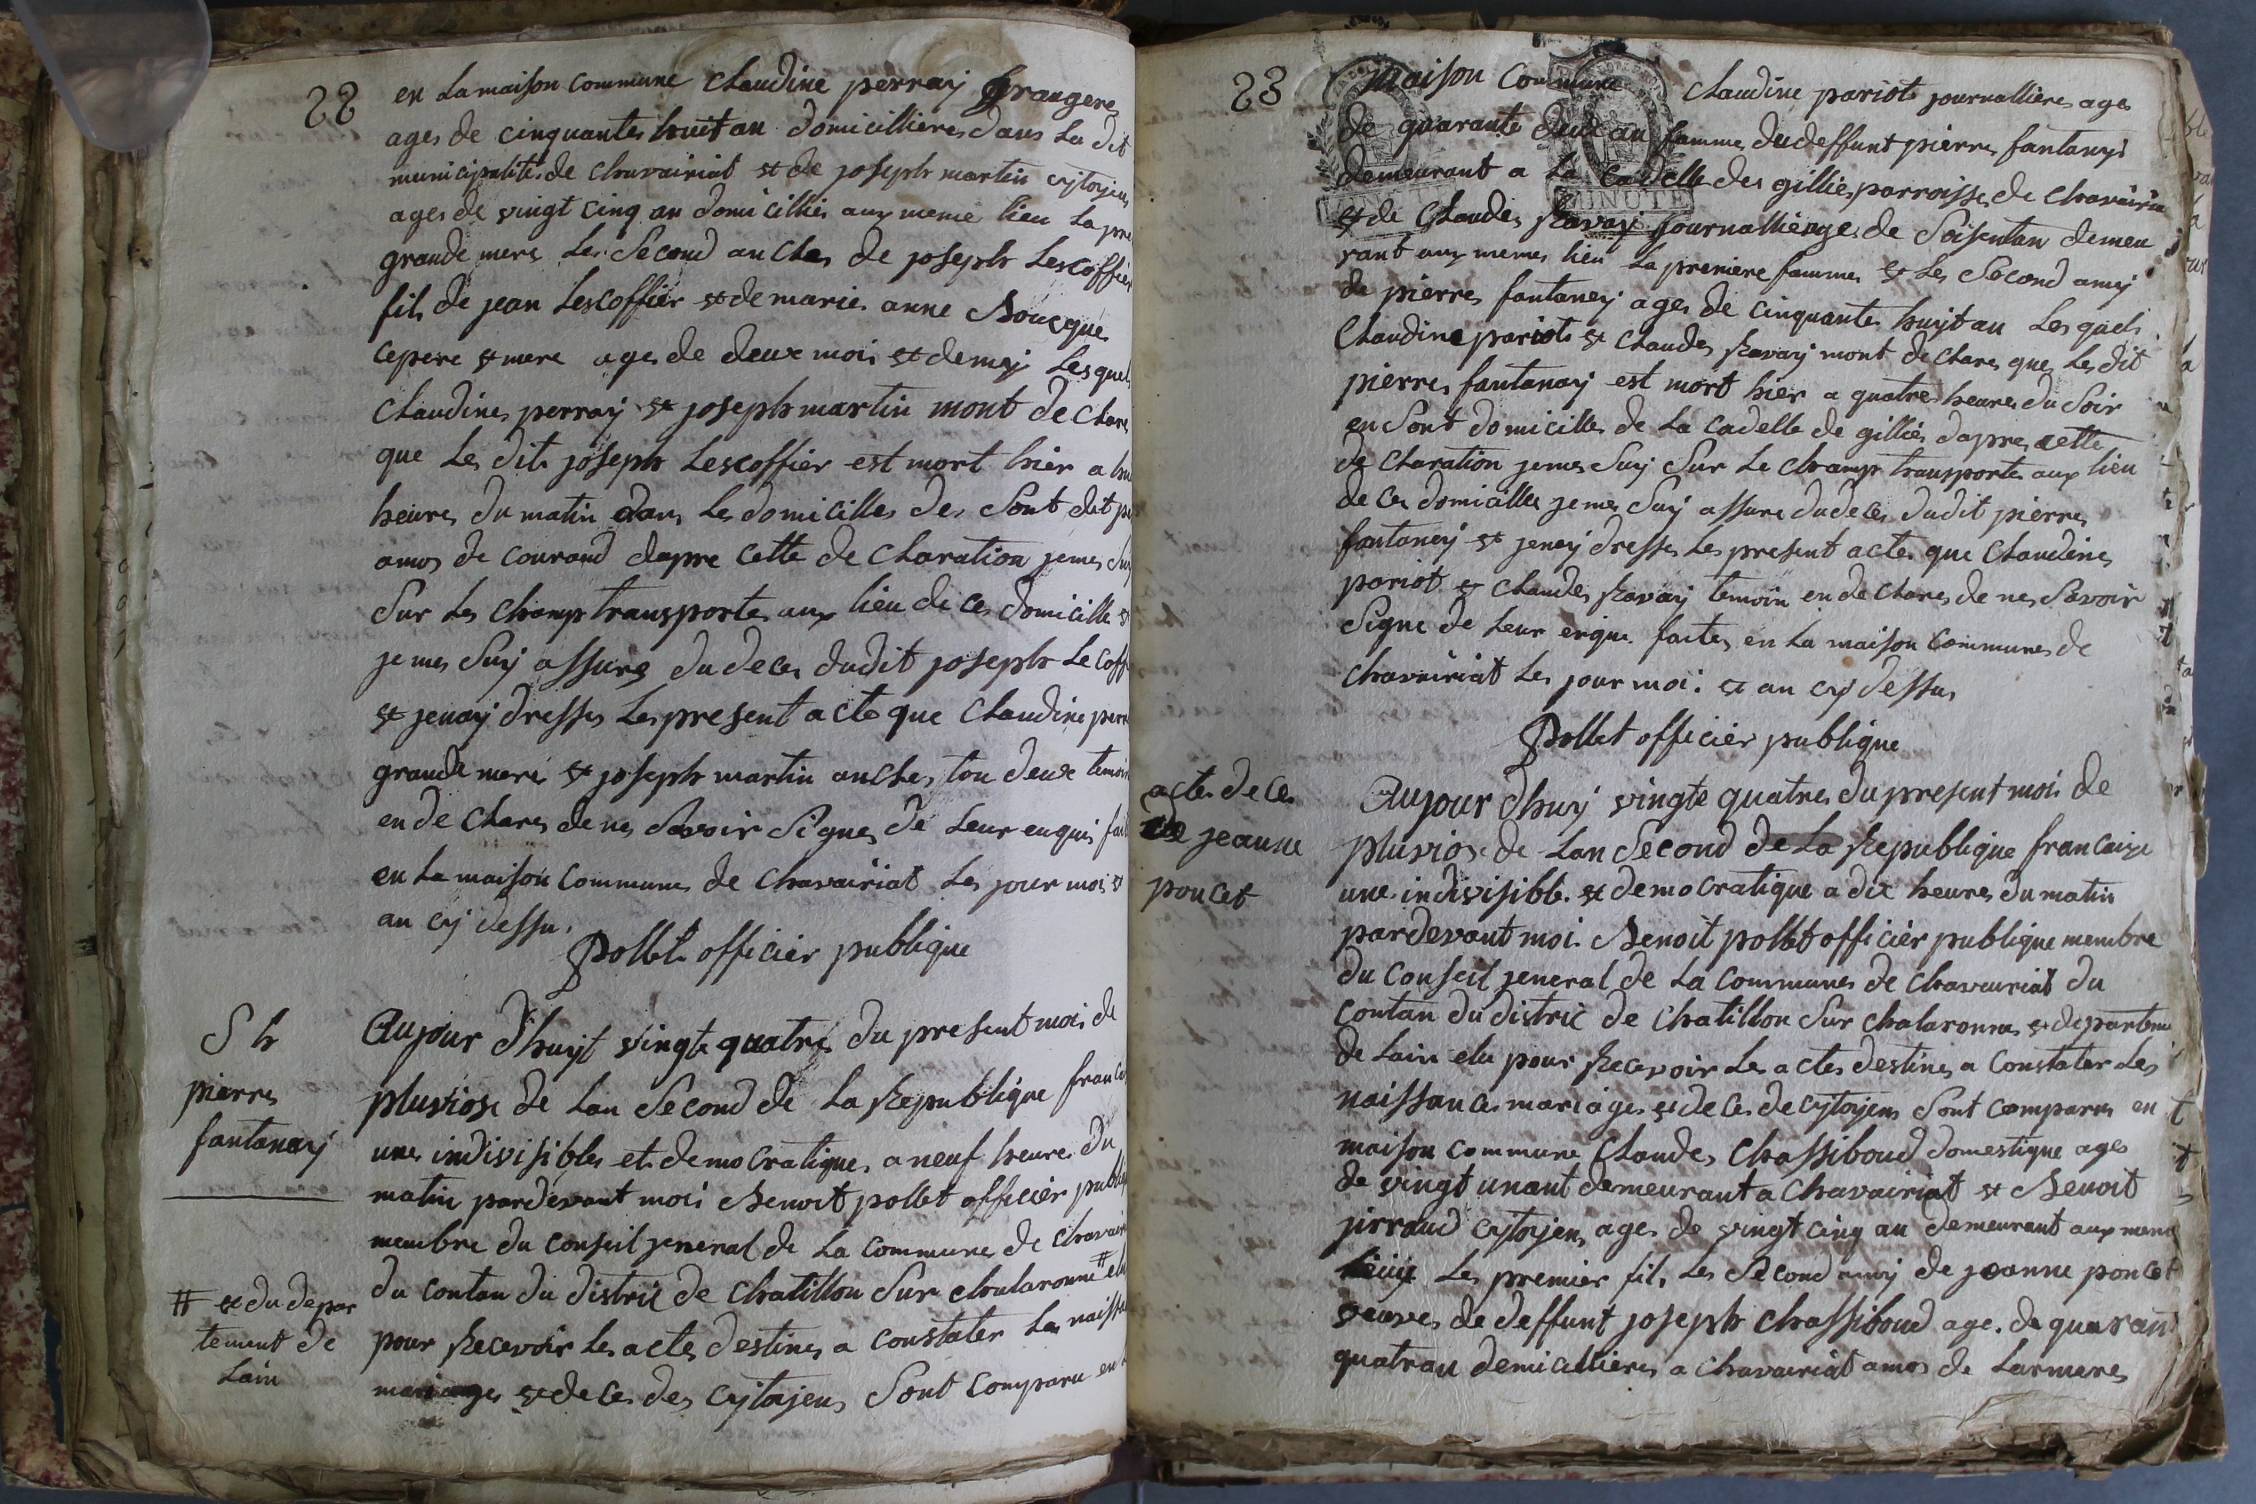 22
en la maison commune claudine perray grangere
ages de cinquantes huit an domicillieres dans la dit
municipalite de chavairiat et de joseph martin cytoyen
ages de vingt cinq an domicillies aux meme lieu la pre
grande mere les second ancles de joseph lescoffier
fils de jean lescoffier et de marie anne Bouçque
cepere et mere ages de deux mois et demy lesquel
claudines perray et joseph martin mont declare
que les dit joseph lescoffier est mort hier a hu
heures du matin dans les domicilles des sont dit pe
amos de courand dapre cette declaration jemes suy
sur les champ transportes aux lieu de ces domicille et
jemes suy assures dudeces dudit joseph lecoff
et jenay dresses les present acte que claudine perr
grande mere et joseph martin ancles tou deux temoin
en declares denes savoir signes de leur enquis fait
en la maison communes de chavairiat les jour mois et
an cy dessu.
pollet officier publique
S h
pierres
fantanay
Aujour dhuyt vingte quatres du present mois de
pluviose de lan second de la republique franca
unes indivisibles et democratiques a neuf heures du
matin pardevant moi Benoit pollet officier publiq
membre du conseil jeneral de la communes de chavair
du contan du distric de chatillon sur chalaronne # elu
# et du depar
tement de
lain
pour recevoir les actes destines a constater les naissa
mariages et deces des cytoyens sont comparu en
23
maison commune claudine pariots journallieres ages
de quarante deux an famme dudeffunt pierres fantanys
demeurant a la cadelle des gillies parroisses de chavairia
et de claudes ravay journallier age de soisentan demeu
rant aux memes lieu la premiere fammes et les second amy
de pierres fantaney ages de cinquantes huyt an les quels
claudine pariots et claudes ravay mont declares ques les dit
pierres fantanay est mort hier a quatres heures du soir
en sont domicilles de la cadelle de gillies dapres cette
declaration jemes suy sur le champ transportes aux lieu
de ces domicilles jemes suy assure dudeces dudit pierres
fantaney et jeney dresses les present actes que claudines
pariot et claudes ravay temoin en declares de nes savoir
signe de leur enque faites en la maison communes de
chavairiat les jour moi. et an cy dessus
pollet officier publique
actes deces
de jeanne
poncet
Aujour dhuy vingte quatres du present mois de
pluviose de lan second de la republique francaize
unes indivisible et democratique a dix heures du matin
pardevant moi Benoit pollet officier publique membre
du conseil jeneral de la communes de chavairiat du
contan du distric de chatillon sur chalaronnes et departeme
de lain elu pour recevoir les actes destines a constater les
naissances mariages et deces de cytoyens sont comparus en
maison commune claudes chassiboud domestique ages
de vingt unant demeurant a chavairiat et Benoit
jirraud cytoyens ages de vingt cinq an demeurant aux meme
les premier fils les second amy de jeanne poncet
veuves de deffunt joseph chassiboud ages de quarant
quatran demicillieres a chavairiat amos de larmeres